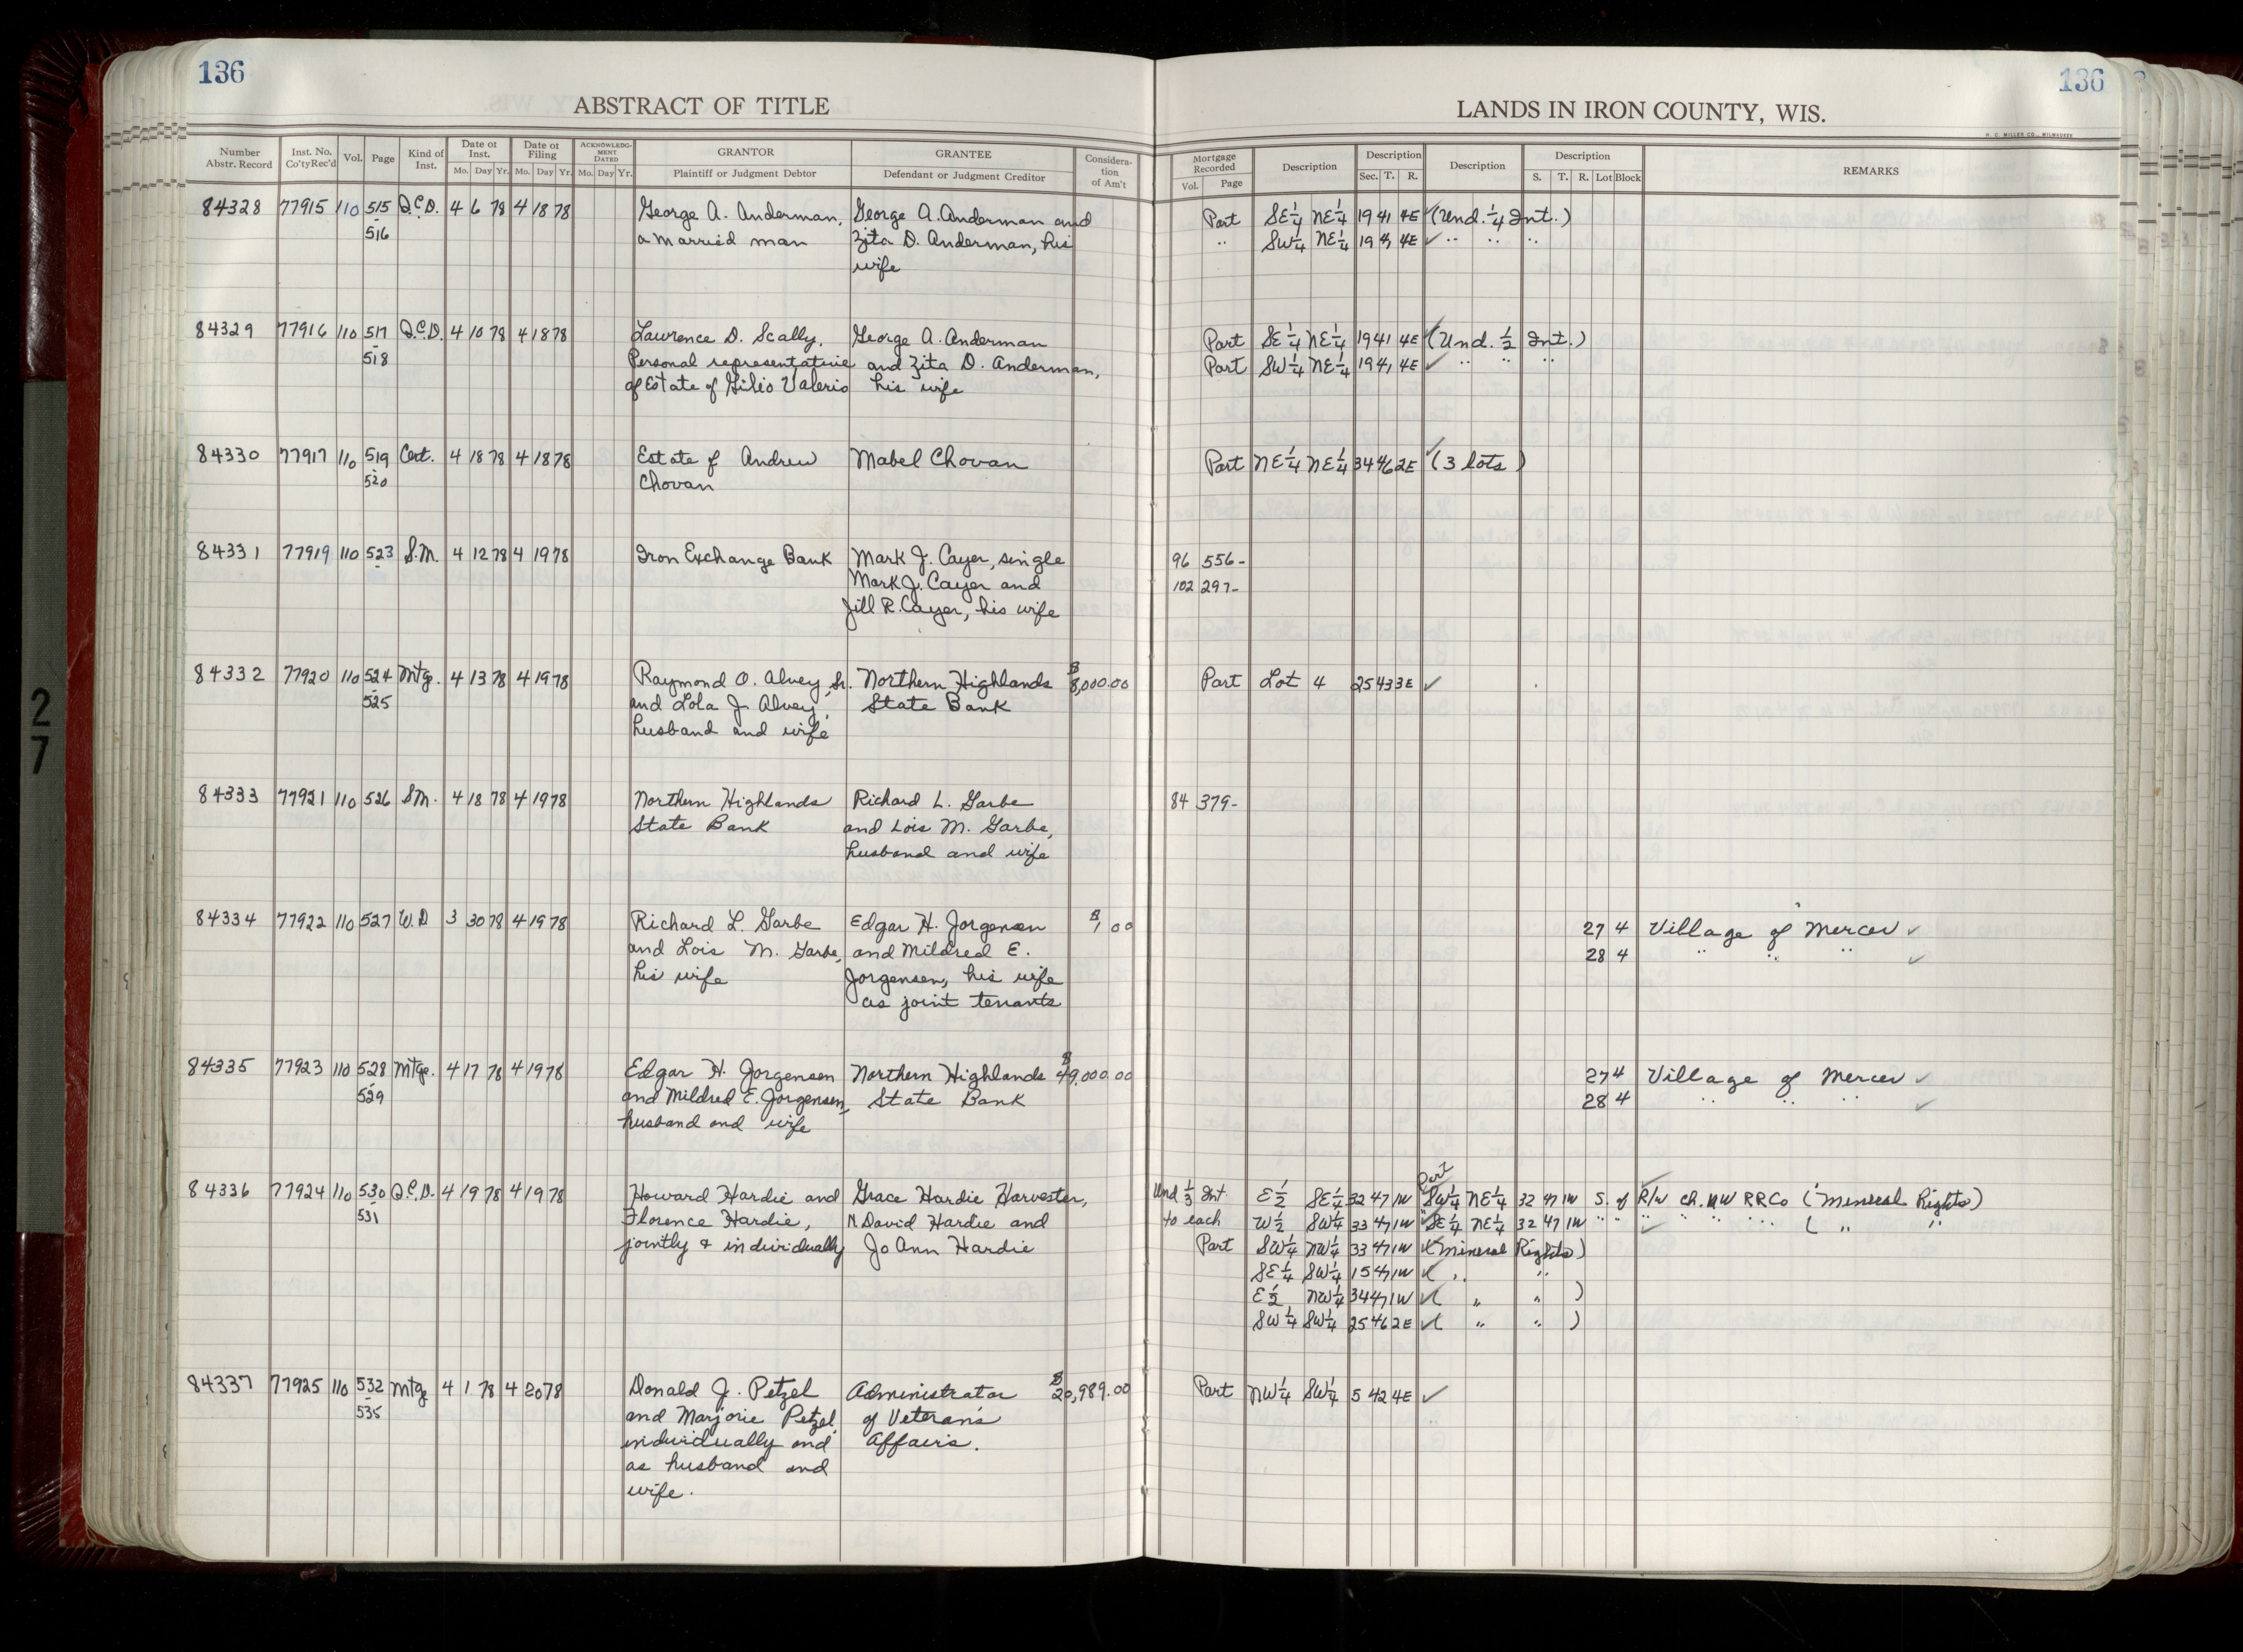 136
136
ABSTRACT OF TITLE
LANDS IN IRON COUNTY, WIS.
H. C. MILLER CO., MILWAUKEE
Number Abstr. Record Inst. No. Co'ty Rec'd Vol. Page Kind of Inst. Date of Inst. Mo. Day Yr. Date of Filing Mo. Day Yr. ACKNOWLEDGMENT DATED Mo. Day Yr. GRANTOR Plaintiff or Judgment Debtor GRANTEE Defendant or Judgment Creditor Consideration of Am't Mortgage Recorded Vol. Page Description Description Sec. T. R. Description Description S. T. R. Lot Block REMARKS
84328 77915 110 515 Q.C.D. 4 6 78 4 18 78 George A. Anderman, George A. Anderman and Part SE 1/4 NE 1/4 19 41 4E ✓ (Und. 1/4 Int.)
516 a married man Zita D. Anderman, his " SW 1/4 NE 1/4 19 41 4E ✓ " " "
wife
84329 77916 110 517 Q.C.D. 4 10 78 4 18 78 Lawrence D. Scally, George A. Anderman Part SE 1/4 NE 1/4 19 41 4E ✓ (Und. 1/2 Int.)
518 Personal representative and Zita D. Anderman, Part SW 1/4 NE 1/4 19 41 4E ✓ " " "
of Estate of Gilio Valerio his wife
84330 77917 110 519 Cert. 4 18 78 4 18 78 Estate of Andrew Mabel Chovan Part NE 1/4 NE 1/4 34 46 2E ✓ (3 lots)
520 Chovan
84331 77919 110 523 S.M. 4 12 78 4 19 78 Iron Exchange Bank Mark J. Cayer, single 96 556-
Mark J. Cayer and 102 297-
Jill R. Cayer, his wife
84332 77920 110 524 Mtg. 4 13 78 4 19 78 Raymond O. Alvey, Sr. Northern Highlands $8,000.00 Part Lot 4 25 43 3E ✓
525 and Lola J. Alvey, State Bank
husband and wife
84333 77921 110 526 SM. 4 18 78 4 19 78 Northern Highlands Richard L. Garbe 84 379-
State Bank and Lois M. Garbe,
husband and wife
84334 77922 110 527 W.D 3 30 78 4 19 78 Richard L. Garbe Edgar H. Jorgensen $1 00 27 4 Village of Mercer ✓
and Lois M. Garbe, and Mildred E. 28 4 " " " ✓
his wife Jorgensen, his wife
as joint tenants
84335 77923 110 528 Mtge. 4 17 78 4 19 78 Edgar H. Jorgensen Northern Highlands $49,000.00 27 4 Village of Mercer ✓
529 and Mildred E. Jorgensen, State Bank 28 4 " " " ✓
husband and wife
84336 77924 110 530 Q.C.D. 4 19 78 4 19 78 Howard Hardie and Grace Hardie Harvester, Und 1/3 Int E 1/2 SE 1/4 32 47 1W Part SW 1/4 NE 1/4 32 47 1W S. of R/W Ch. NW RR Co (Mineral Rights)
531 Florence Hardie, N. David Hardie and to each W 1/2 SW 1/4 33 47 1W " SE 1/4 NE 1/4 32 47 1W " " " " " " ( " "
jointly & individually Jo Ann Hardie Part SW 1/4 NW 1/4 33 47 1W ✓ (Mineral Rights)
SE 1/4 SW 1/4 15 47 1W ✓ ( " "
E 1/2 NW 1/4 34 47 1W ✓ ( " " )
SW 1/4 SW 1/4 25 46 2E ✓ ( " " )
84337 77925 110 532 Mtg 4 1 78 4 20 78 Donald J. Petzel Administrator $20,989.00 Part NW 1/4 SW 1/4 5 42 4E ✓
535 and Marjorie Petzel, of Veteran's
individually and Affairs.
as husband and
wife.
27